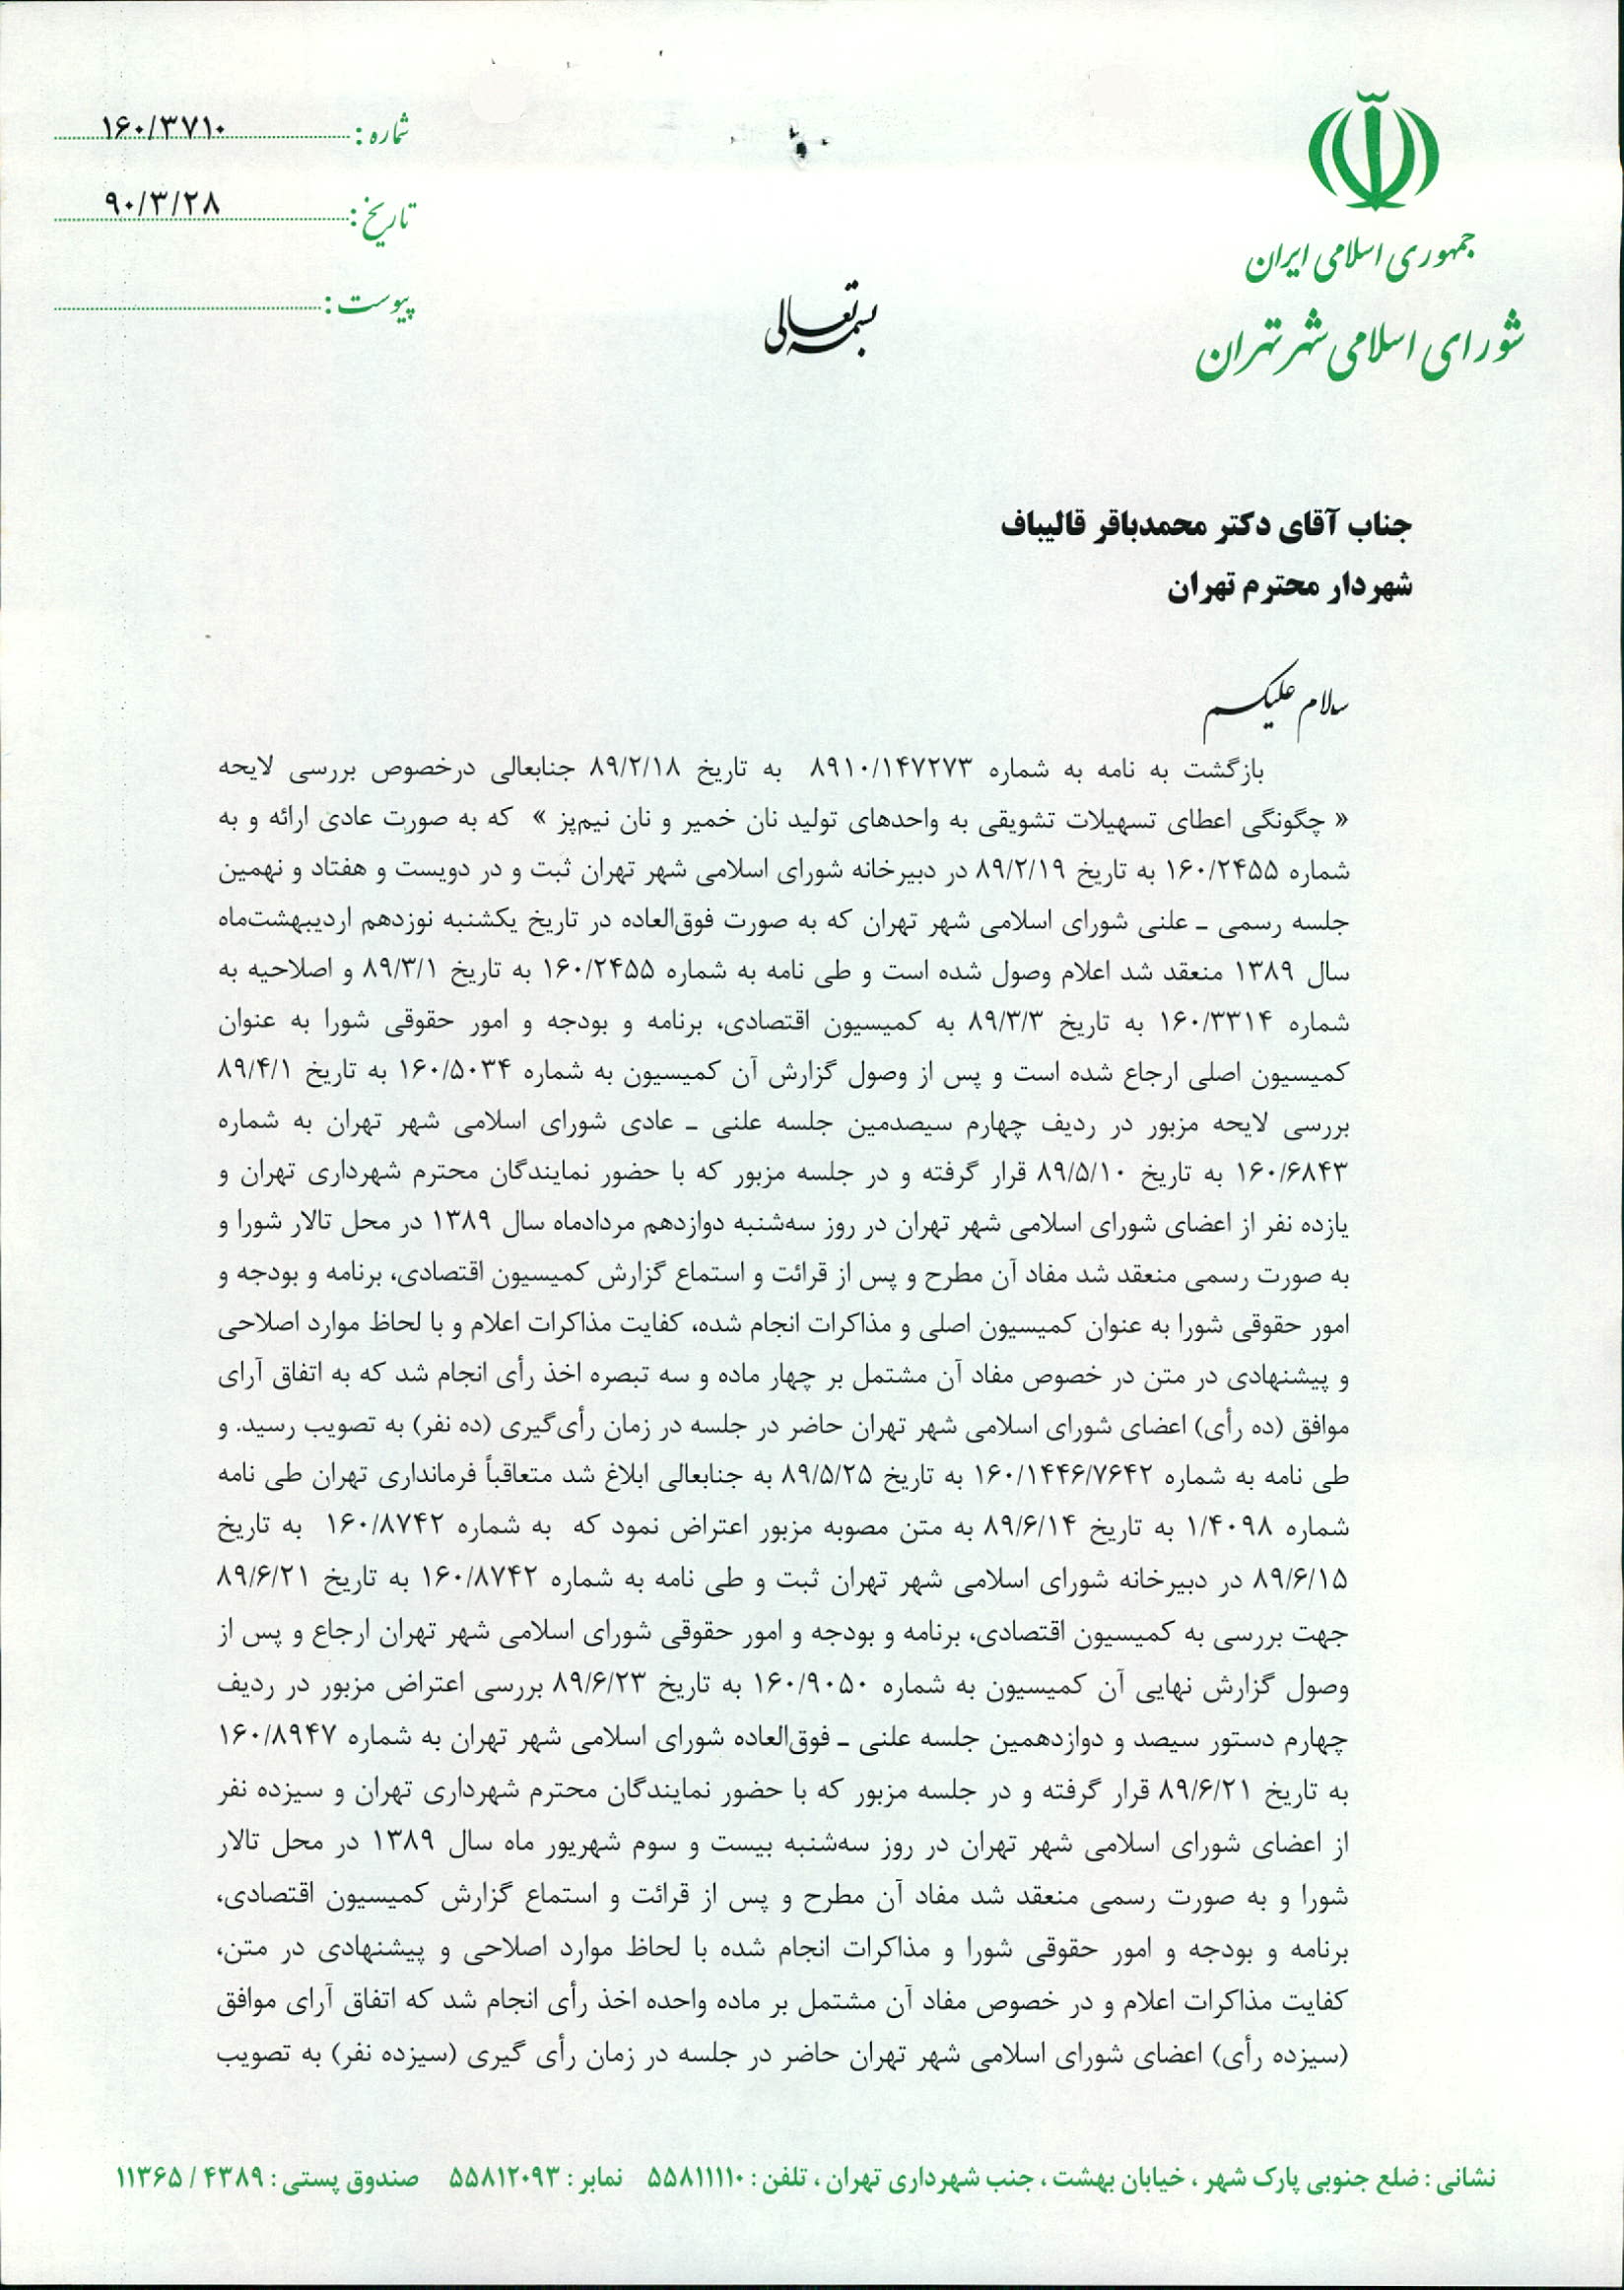 جمهوری اسلامی ایران
شورای اسلامی شهر تهران
شماره: ۱۶۰/۳۷۱۰
تاریخ: ۹۰/۳/۲۸
پیوست:
بسمه تعالی
جناب آقای دکتر محمدباقر قالیباف
شهردار محترم تهران
سلام علیکم
بازگشت به نامه به شماره ۸۹۱۰/۱۴۷۲۷۳ به تاریخ ۸۹/۲/۱۸ جنابعالی درخصوص بررسی لایحه
« چگونگی اعطای تسهیلات تشویقی به واحدهای تولید نان خمیر و نان نیم‌پز » که به صورت عادی ارائه و به
شماره ۱۶۰/۲۴۵۵ به تاریخ ۸۹/۲/۱۹ در دبیرخانه شورای اسلامی شهر تهران ثبت و در دویست و هفتاد و نهمین
جلسه رسمی ـ علنی شورای اسلامی شهر تهران که به صورت فوق‌العاده در تاریخ یکشنبه نوزدهم اردیبهشت‌ماه
سال ۱۳۸۹ منعقد شد اعلام وصول شده است و طی نامه به شماره ۱۶۰/۲۴۵۵ به تاریخ ۸۹/۳/۱ و اصلاحیه به
شماره ۱۶۰/۳۳۱۴ به تاریخ ۸۹/۳/۳ به کمیسیون اقتصادی، برنامه و بودجه و امور حقوقی شورا به عنوان
کمیسیون اصلی ارجاع شده است و پس از وصول گزارش آن کمیسیون به شماره ۱۶۰/۵۰۳۴ به تاریخ ۸۹/۴/۱
بررسی لایحه مزبور در ردیف چهارم سیصدمین جلسه علنی ـ عادی شورای اسلامی شهر تهران به شماره
۱۶۰/۶۸۴۳ به تاریخ ۸۹/۵/۱۰ قرار گرفته و در جلسه مزبور که با حضور نمایندگان محترم شهرداری تهران و
یازده نفر از اعضای شورای اسلامی شهر تهران در روز سه‌شنبه دوازدهم مردادماه سال ۱۳۸۹ در محل تالار شورا و
به صورت رسمی منعقد شد مفاد آن مطرح و پس از قرائت و استماع گزارش کمیسیون اقتصادی، برنامه و بودجه و
امور حقوقی شورا به عنوان کمیسیون اصلی و مذاکرات انجام شده، کفایت مذاکرات اعلام و با لحاظ موارد اصلاحی
و پیشنهادی در متن در خصوص مفاد آن مشتمل بر چهار ماده و سه تبصره اخذ رأی انجام شد که به اتفاق آرای
موافق (ده رأی) اعضای شورای اسلامی شهر تهران حاضر در جلسه در زمان رأی‌گیری (ده نفر) به تصویب رسید. و
طی نامه به شماره ۱۶۰/۱۴۴۶/۷۶۴۲ به تاریخ ۸۹/۵/۲۵ به جنابعالی ابلاغ شد متعاقباً فرمانداری تهران طی نامه
شماره ۱/۴۰۹۸ به تاریخ ۸۹/۶/۱۴ به متن مصوبه مزبور اعتراض نمود که به شماره ۱۶۰/۸۷۴۲ به تاریخ
۸۹/۶/۱۵ در دبیرخانه شورای اسلامی شهر تهران ثبت و طی نامه به شماره ۱۶۰/۸۷۴۲ به تاریخ ۸۹/۶/۲۱
جهت بررسی به کمیسیون اقتصادی، برنامه و بودجه و امور حقوقی شورای اسلامی شهر تهران ارجاع و پس از
وصول گزارش نهایی آن کمیسیون به شماره ۱۶۰/۹۰۵۰ به تاریخ ۸۹/۶/۲۳ بررسی اعتراض مزبور در ردیف
چهارم دستور سیصد و دوازدهمین جلسه علنی ـ فوق‌العاده شورای اسلامی شهر تهران به شماره ۱۶۰/۸۹۴۷
به تاریخ ۸۹/۶/۲۱ قرار گرفته و در جلسه مزبور که با حضور نمایندگان محترم شهرداری تهران و سیزده نفر
از اعضای شورای اسلامی شهر تهران در روز سه‌شنبه بیست و سوم شهریور ماه سال ۱۳۸۹ در محل تالار
شورا و به صورت رسمی منعقد شد مفاد آن مطرح و پس از قرائت و استماع گزارش کمیسیون اقتصادی،
برنامه و بودجه و امور حقوقی شورا و مذاکرات انجام شده با لحاظ موارد اصلاحی و پیشنهادی در متن،
کفایت مذاکرات اعلام و در خصوص مفاد آن مشتمل بر ماده واحده اخذ رأی انجام شد که اتفاق آرای موافق
(سیزده رأی) اعضای شورای اسلامی شهر تهران حاضر در جلسه در زمان رأی گیری (سیزده نفر) به تصویب
نشانی : ضلع جنوبی پارک شهر ، خیابان بهشت ، جنب شهرداری تهران ، تلفن : ۵۵۸۱۱۱۱۰ نمابر : ۵۵۸۱۲۰۹۳ صندوق پستی : ۴۳۸۹ / ۱۱۳۶۵